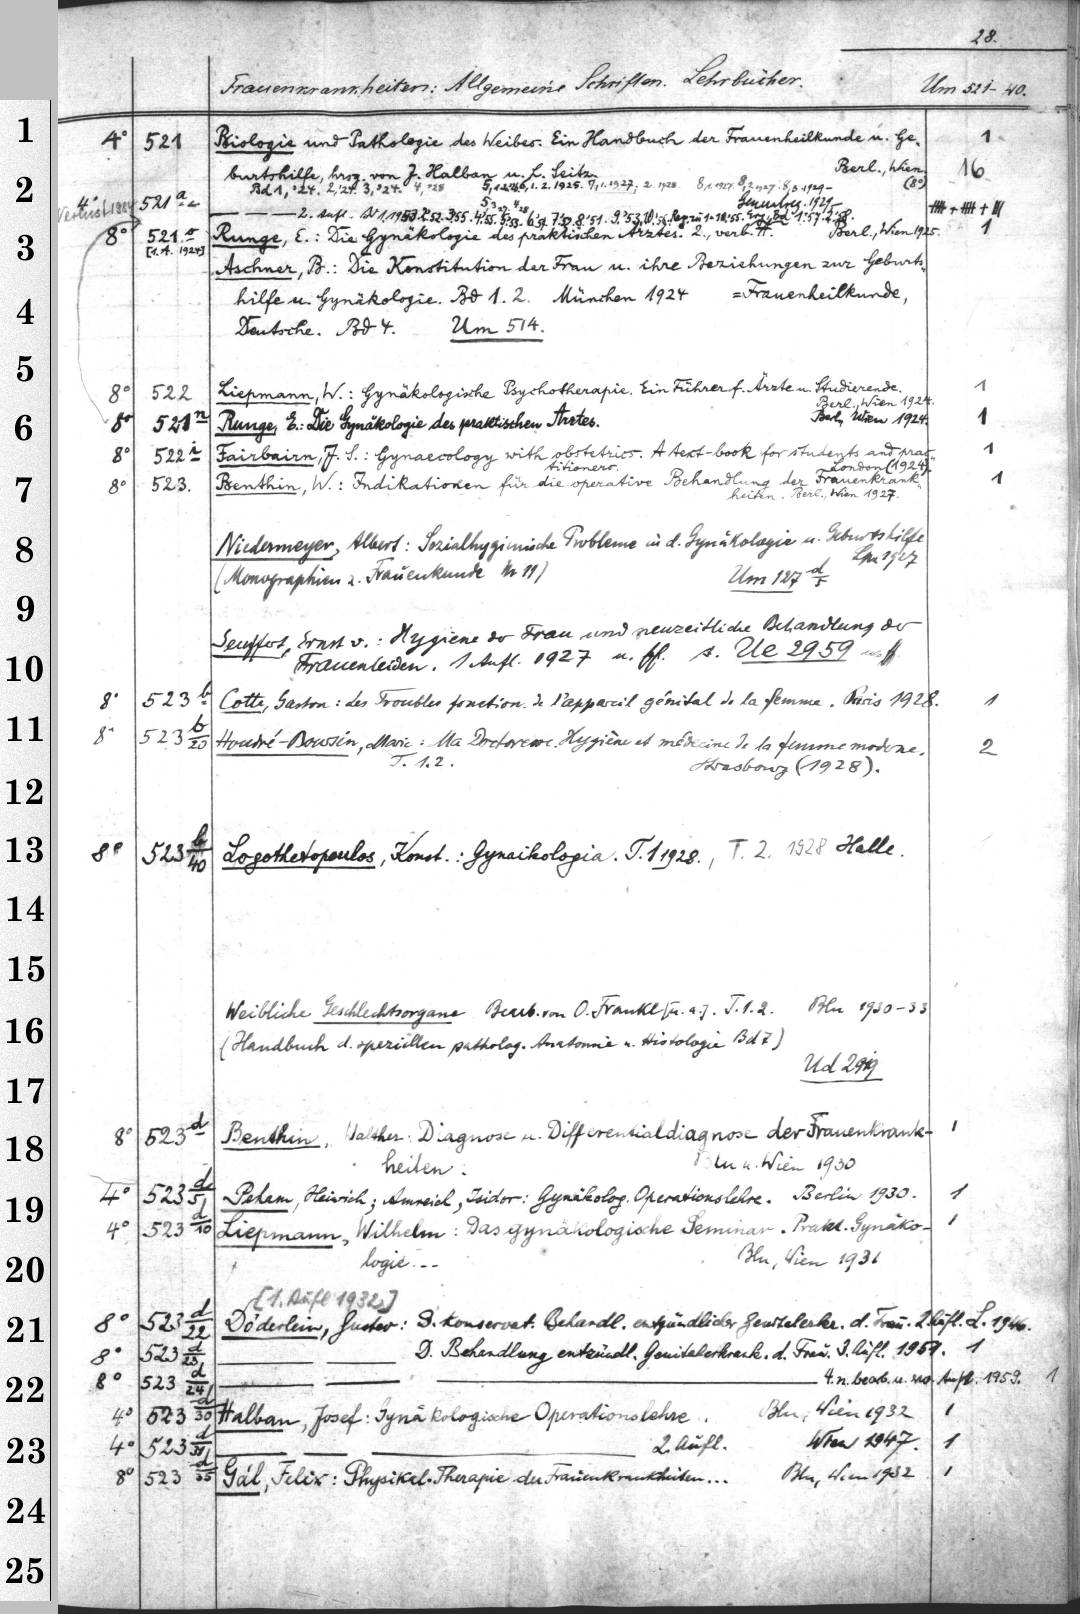 28.
Frauenkrankheiten: Allgemeine Schriften. Lehrbücher. Um 521-40.
1
4° 521 Biologie und Pathologie des Weibes. Ein Handbuch der Frauenheilkunde u. Ge- 1
burtshilfe, hrsg. von J. Halban u. L. Seitz. Berl., Wien. 16
2
Bd 1, '24. 2,'24. 3,'24. (8°)
4° 521 a
Verlust 1924
2. Aufl.
3
8° 521 Runge, E.: Die Gynäkologie des praktischen Arztes. 2., verb. A. Berl., Wien 1925. 1
[1. A. 1924]
Aschner, B.: Die Konstitution der Frau u. ihre Beziehungen zur Geburts-
4
hilfe u. Gynäkologie. Bd 1. 2. München 1924 =Frauenheilkunde,
Deutsche. Bd 4. Um 514.
5
8° 522 Liepmann, W.: Gynäkologische Psychotherapie. Ein Führer f. Ärzte u. Studierende. 1
Berl., Wien 1924.
6
8° 521 n Runge, E.: Die Gynäkologie des praktischen Arztes. Berl., Wien 1924. 1
8° 522 i Fairbairn, J. S.: Gynaecology with obstetrics. A text-book for students and prac- 1
titioners. London (1924).
7
8° 523. Benthin, W.: Indikationen für die operative Behandlung der Frauenkrank- 1
heiten. Berl., Wien 1927.
8
Niedermeyer, Albert: Sozialhygienische Probleme in d. Gynäkologie u. Geburtshilfe
Lpz 1927
(Monographien z. Frauenkunde Nr 11) Um 127
9
Seuffert, Ernst v.: Hygiene der Frau und neuzeitliche Behandlung der
10
Frauenleiden. 1 Aufl. 1927 u. ff. s. Ue 2959
8° 523 b Cotte, Gaston: les Troubles fonction. de l'appareil génital de la femme. Paris 1928. 1
11
8° 523 b/20 Houdré-Boursin, Marie: Ma Doctoresse. Hygiène et médecine de la femme moderne. 2
T. 1.2. Strasbourg (1928).
12
13
8° 523 b/40 Logothetopoulos, Konst.: Gynaikologia. T. 1 1928., T. 2. 1928 Halle.
14
15
Weibliche Geschlechtsorgane Bearb. von O. Frankl [u. a.]. T. 1.2. Bln 1930-33
16
(Handbuch d. speziellen patholog. Anatomie u. Histologie Bd 7)
17
18
8° 523 d Benthin, Walther: Diagnose u. Differentialdiagnose der Frauenkrank- 1
heiten. Bln u. Wien 1930
19
4° 523 d/5 Peham, Heinrich; Amreich, Isidor: Gynäkolog. Operationslehre. Berlin 1930. 1
4° 523 d/10 Liepmann, Wilhelm: Das gynäkologische Seminar. Prakt. Gynäko- 1
20
logie... Bln, Wien 1931
[1. Aufl 1932]
21
8° 523 d/22 Döderlein, Gustav: D. konservat. Behandl. entzündlicher Genitalerkr. d. Frau. 2. Aufl. L. 1946.
8° 523 d/23 D. Behandlung entzündl. Genitalerkrank. d. Frau. 3. Aufl. 1951. 1
22
8° 523 d/24 4. n. bearb. u. Aufl. 1959. 1
4° 523 d/30 Halban, Josef: Gynäkologische Operationslehre.. Bln, Wien 1932 1
23
4° 523 d/31 2. Aufl. Wien 1947. 1
8° 523 d/35 Gál, Felix: Physikal. Therapie der Frauenkrankheiten... Bln, Wien 1932 1
24
25